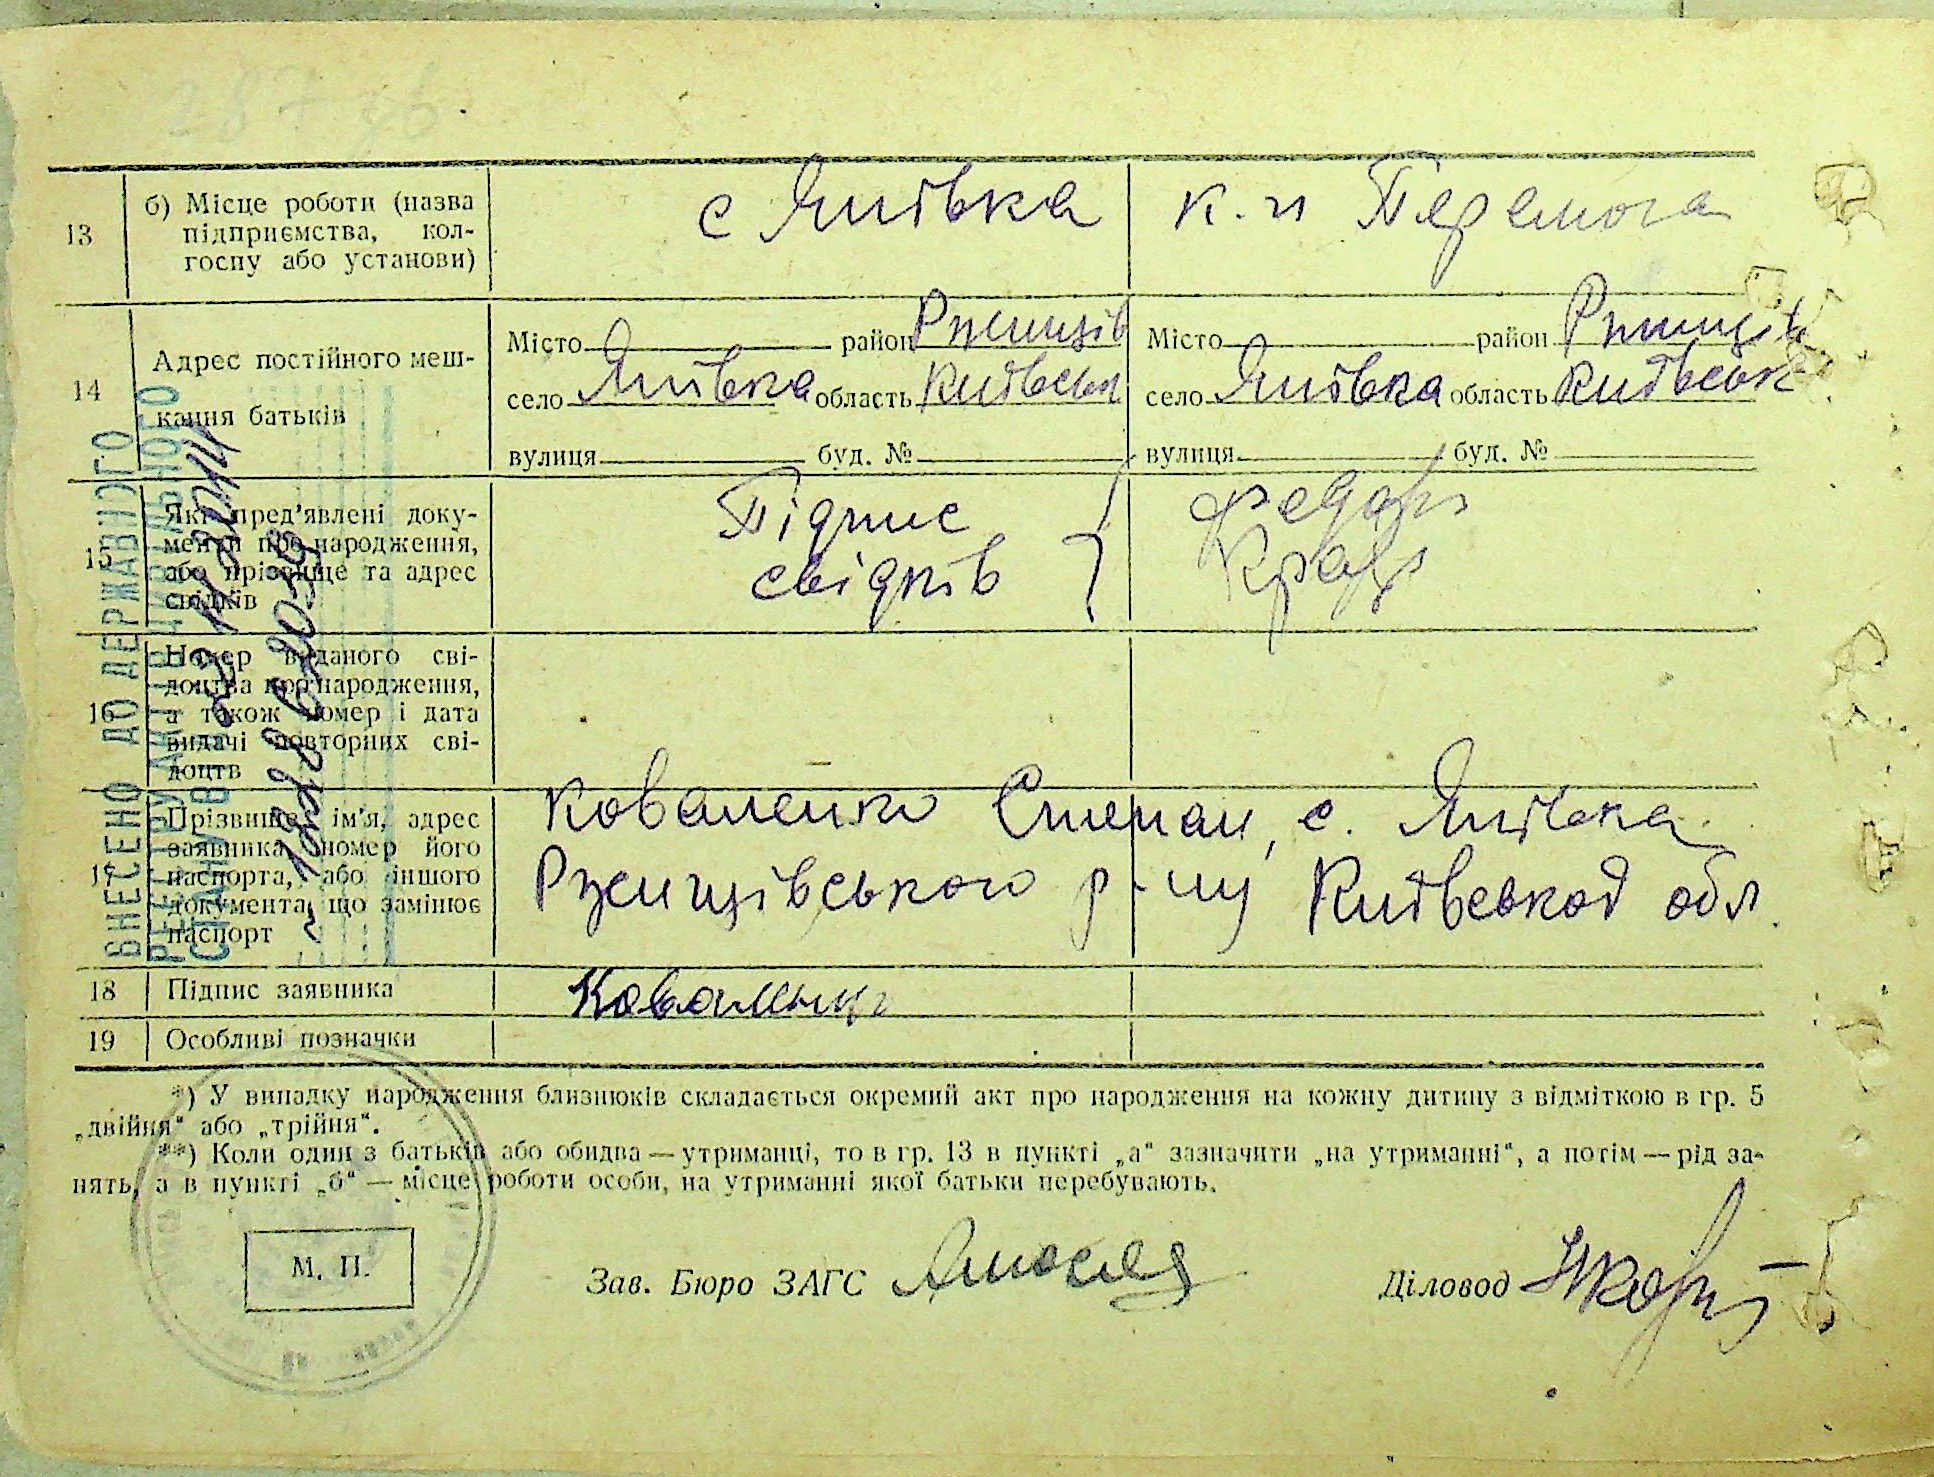 13
б) Місце роботи (назва
підприємства, кол-
госпу або установи)
с Яшівка
к. п Перемога
14
Адрес постійного меш-
кання батьків
Місто район Ржищів
село область Київськ
вулиця буд. №
Місто район Ржищів
село область Київськ
вулиця буд. №
15
Які пред'явлені доку-
менти про народження,
або прізвище та адрес
свідків
Підпис
свідків
16
Номер виданого сві-
доцтва про народження,
а також номер і дата
видачі повторних сві-
доцтв
17
Прізвище, ім'я, адрес
заявника, номер його
паспорта, або іншого
документа, що замінює
паспорт
Коваленко Степан, с.
Ржищівського р-ну Київської обл.
18
Підпис заявника
19
Особливі позначки
ВНЕСЕНО ДО ДЕРЖАВНОГО
РЕЄСТРУ АКТІВ ЦИВІЛЬНОГО
СТАНУ
*) У випадку народження близнюків складається окремий акт про народження на кожну дитину з відміткою в гр. 5
„двійня“ або „трійня“.
**) Коли один з батьків або обидва — утриманці, то в гр. 13 в пункті „а“ зазначити „на утриманні“, а потім — рід за-
нять, а в пункті „б“ — місце роботи особи, на утриманні якої батьки перебувають.
М. П.
Зав. Бюро ЗАГС
Діловод